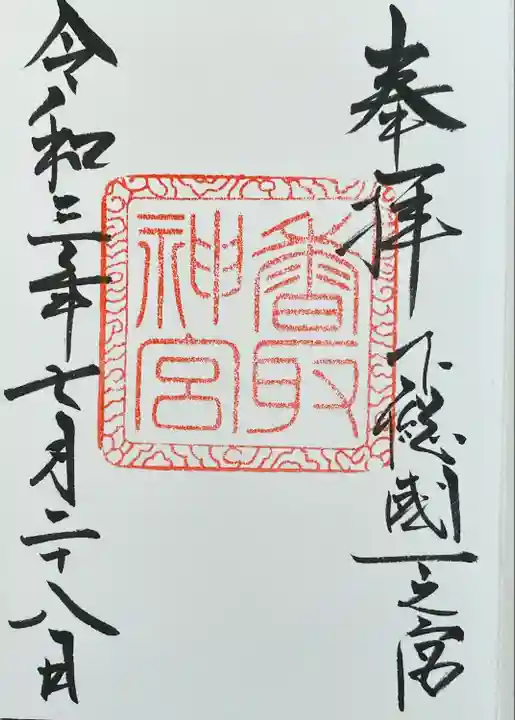 奉拝
下總國一之宮
香取
神宮
令和三年七月二十八日